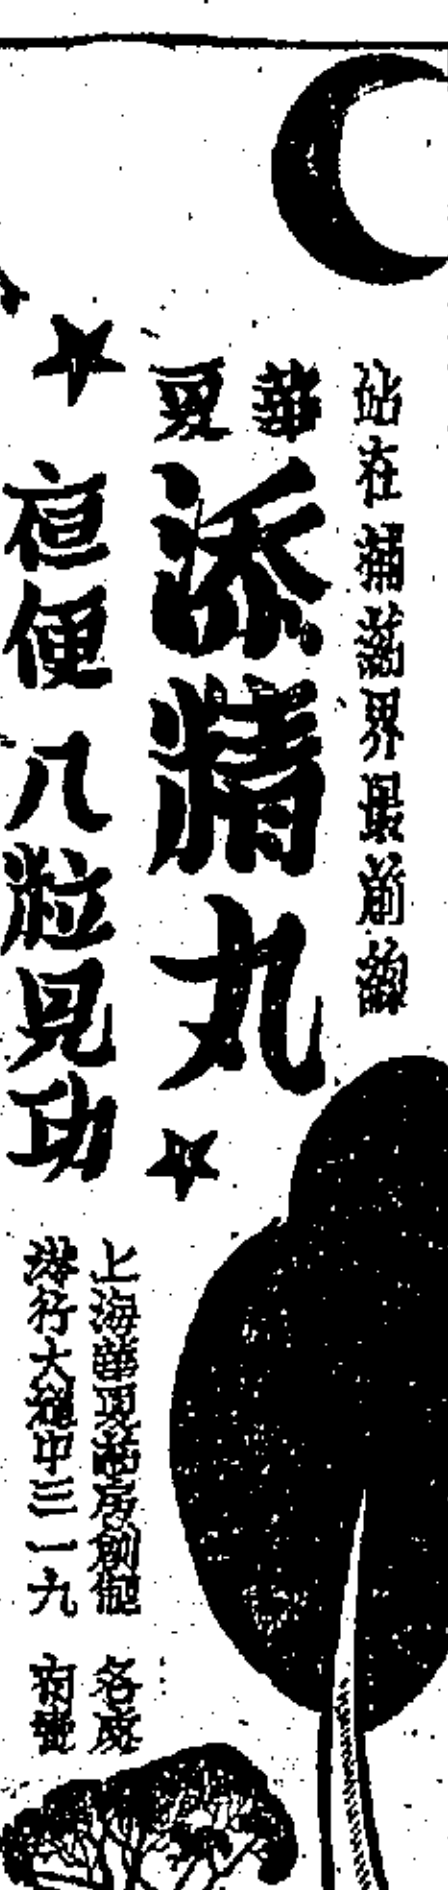 站在補藥界最前線
華夏
添精丸
夜便八粒見功
上海華夏藥房創製
港行大道中三一九
各處有售